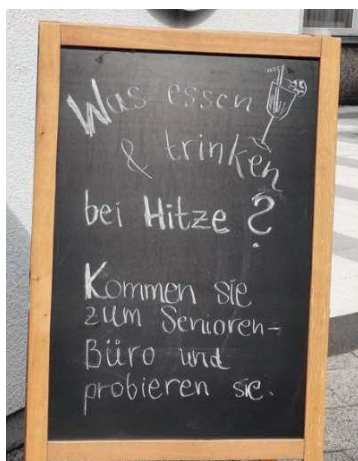 Was essen
& trinken
bei Hitze?
Kommen sie
zum Senioren-
Büro und
probieren sie.